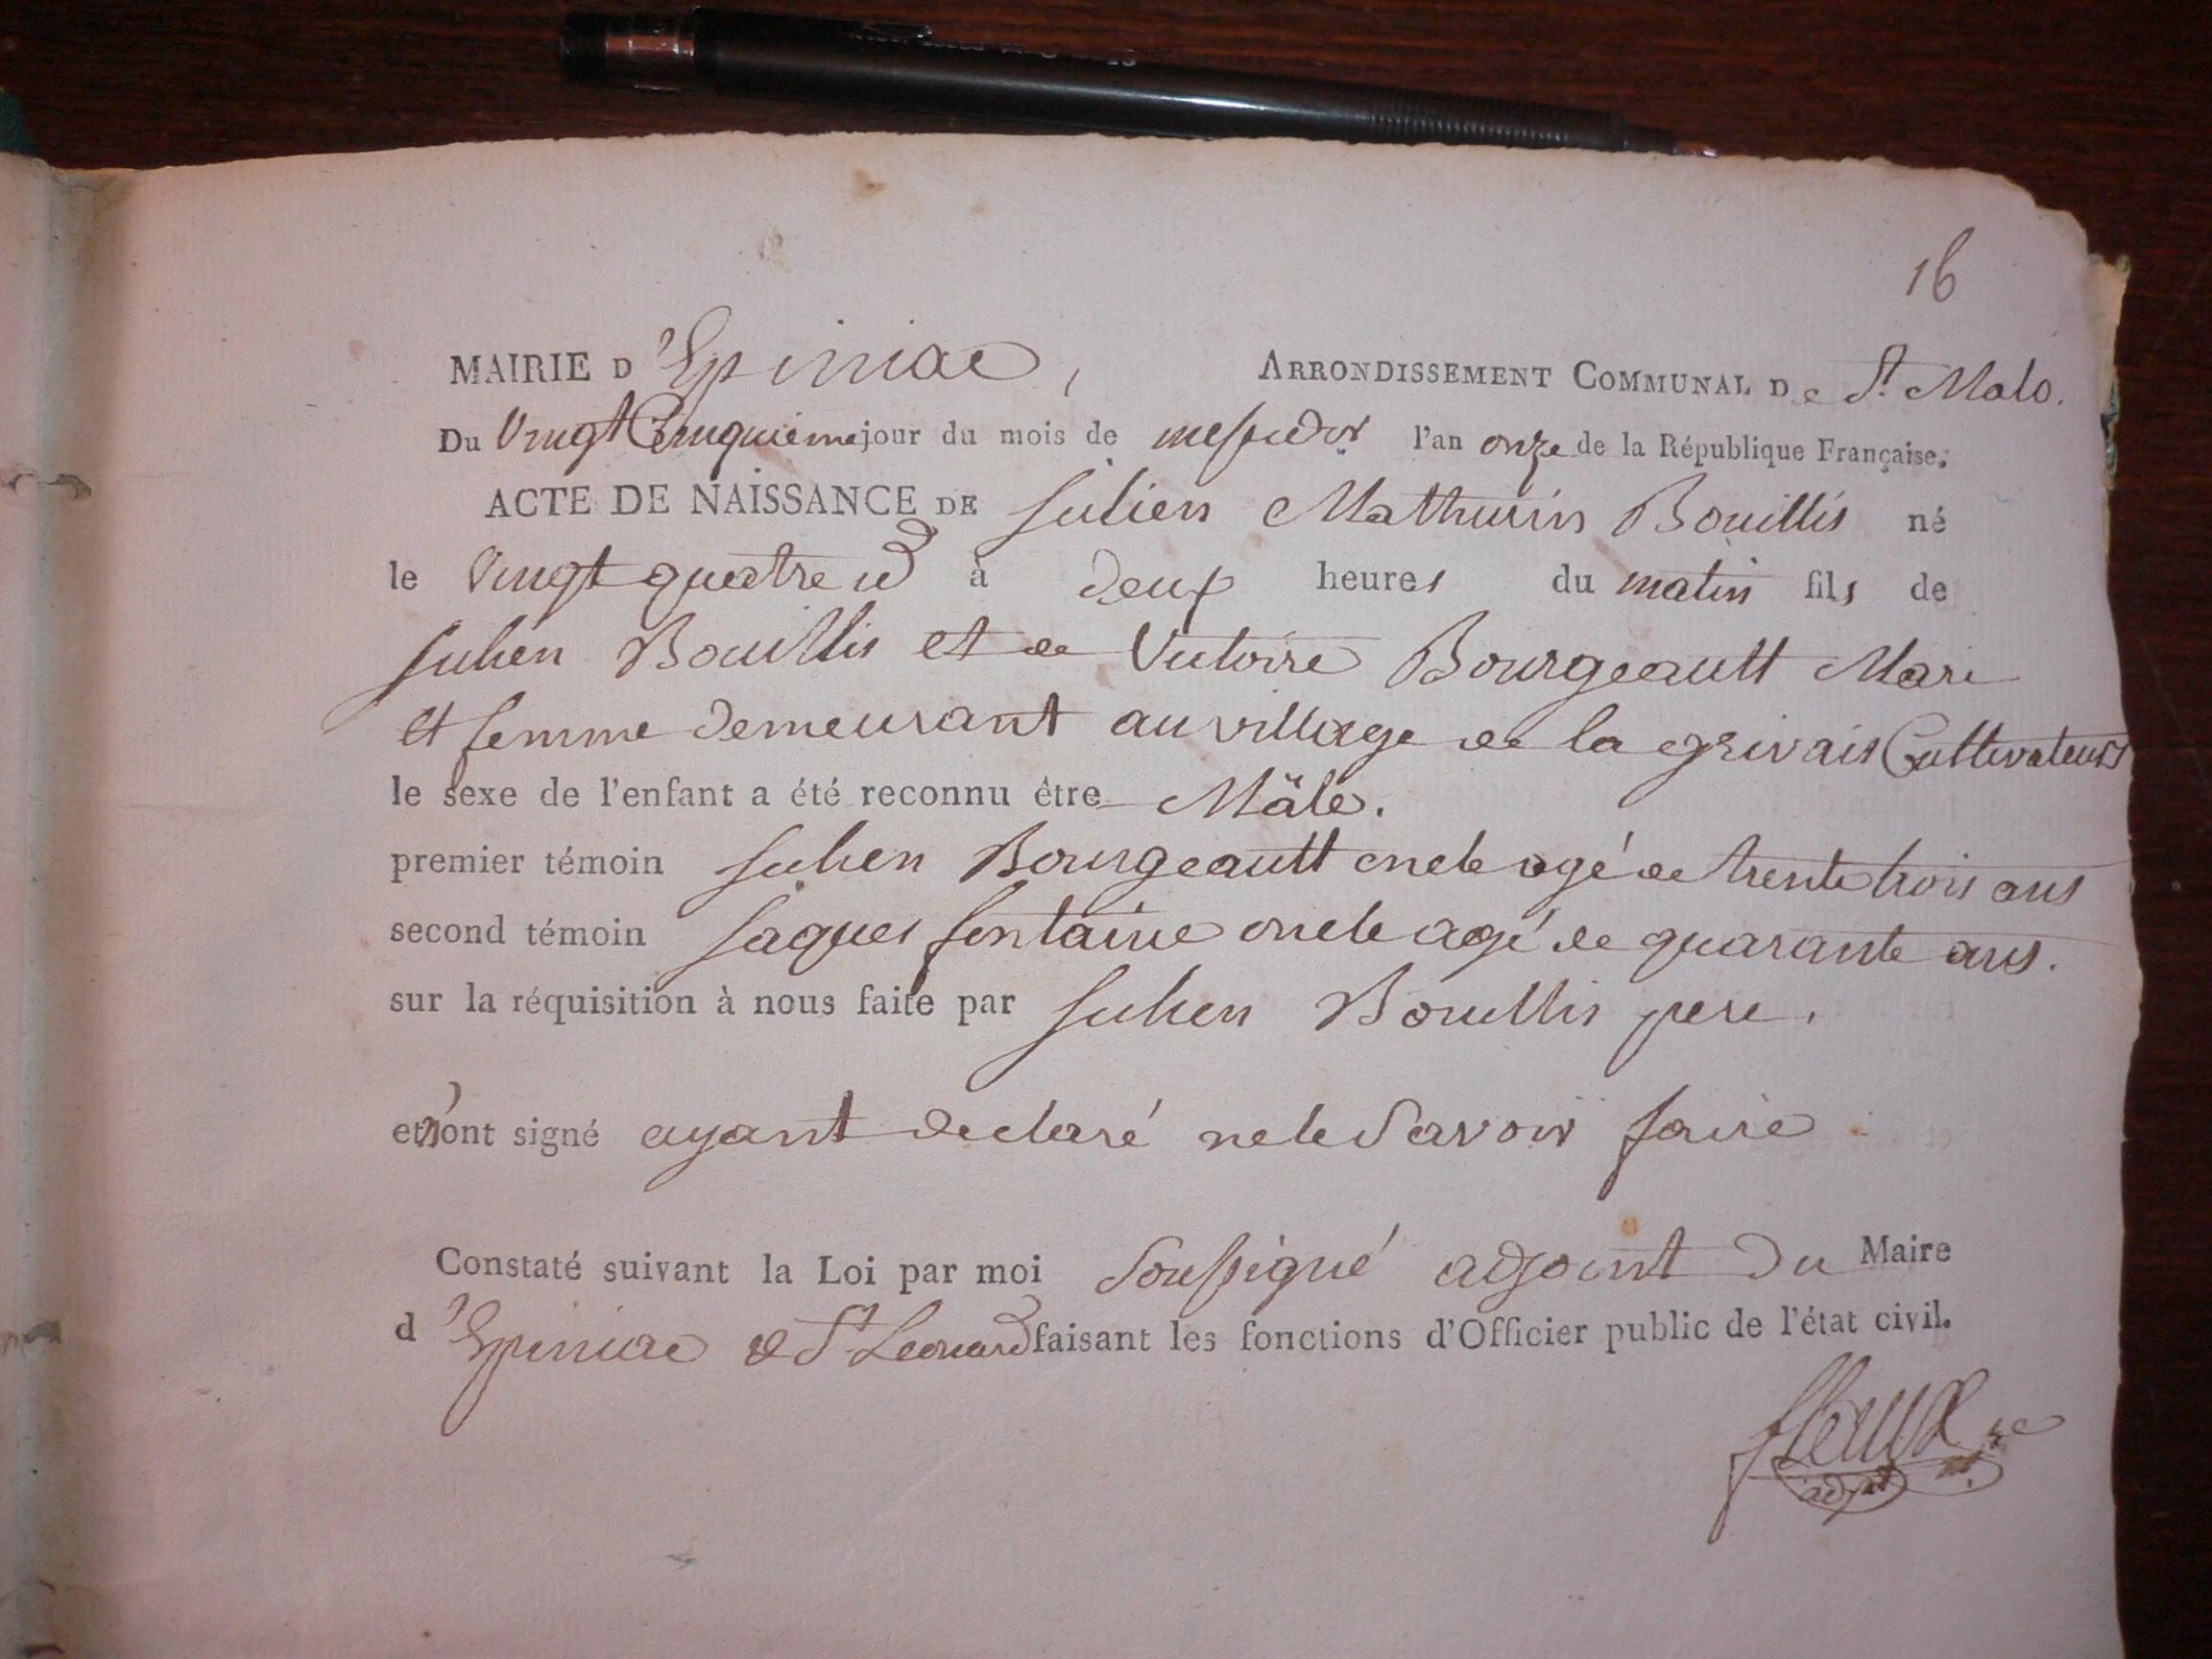 16
MAIRIE D'Epiniac, ARRONDISSEMENT COMMUNAL De St. Malo.
Du Vingt Cinquieme jour du mois de messidor l'an onze de la République Française.
ACTE DE NAISSANCE DE Julien Mathurin Bouillis né
le Vingt quatre id à deux heures du matin fils de
Julien Bouillis et de Victoire Bourgeault Mari
et femme demeurant au village de la grivais Cultivateurs
le sexe de l'enfant a été reconnu être Mâle.
premier témoin Julien Bourgeault oncle agé de trente trois ans
second témoin Jaques fontaine oncle agé de quarante ans.
sur la réquisition à nous faite par Julien Bouillis pere.
et n'ont signé ayant declaré ne le Savoir faire
Constaté suivant la Loi par moi Soussigné adjoint du Maire
d'Epiniac & St Leonard faisant les fonctions d'Officier public de l'état civil.
adjt